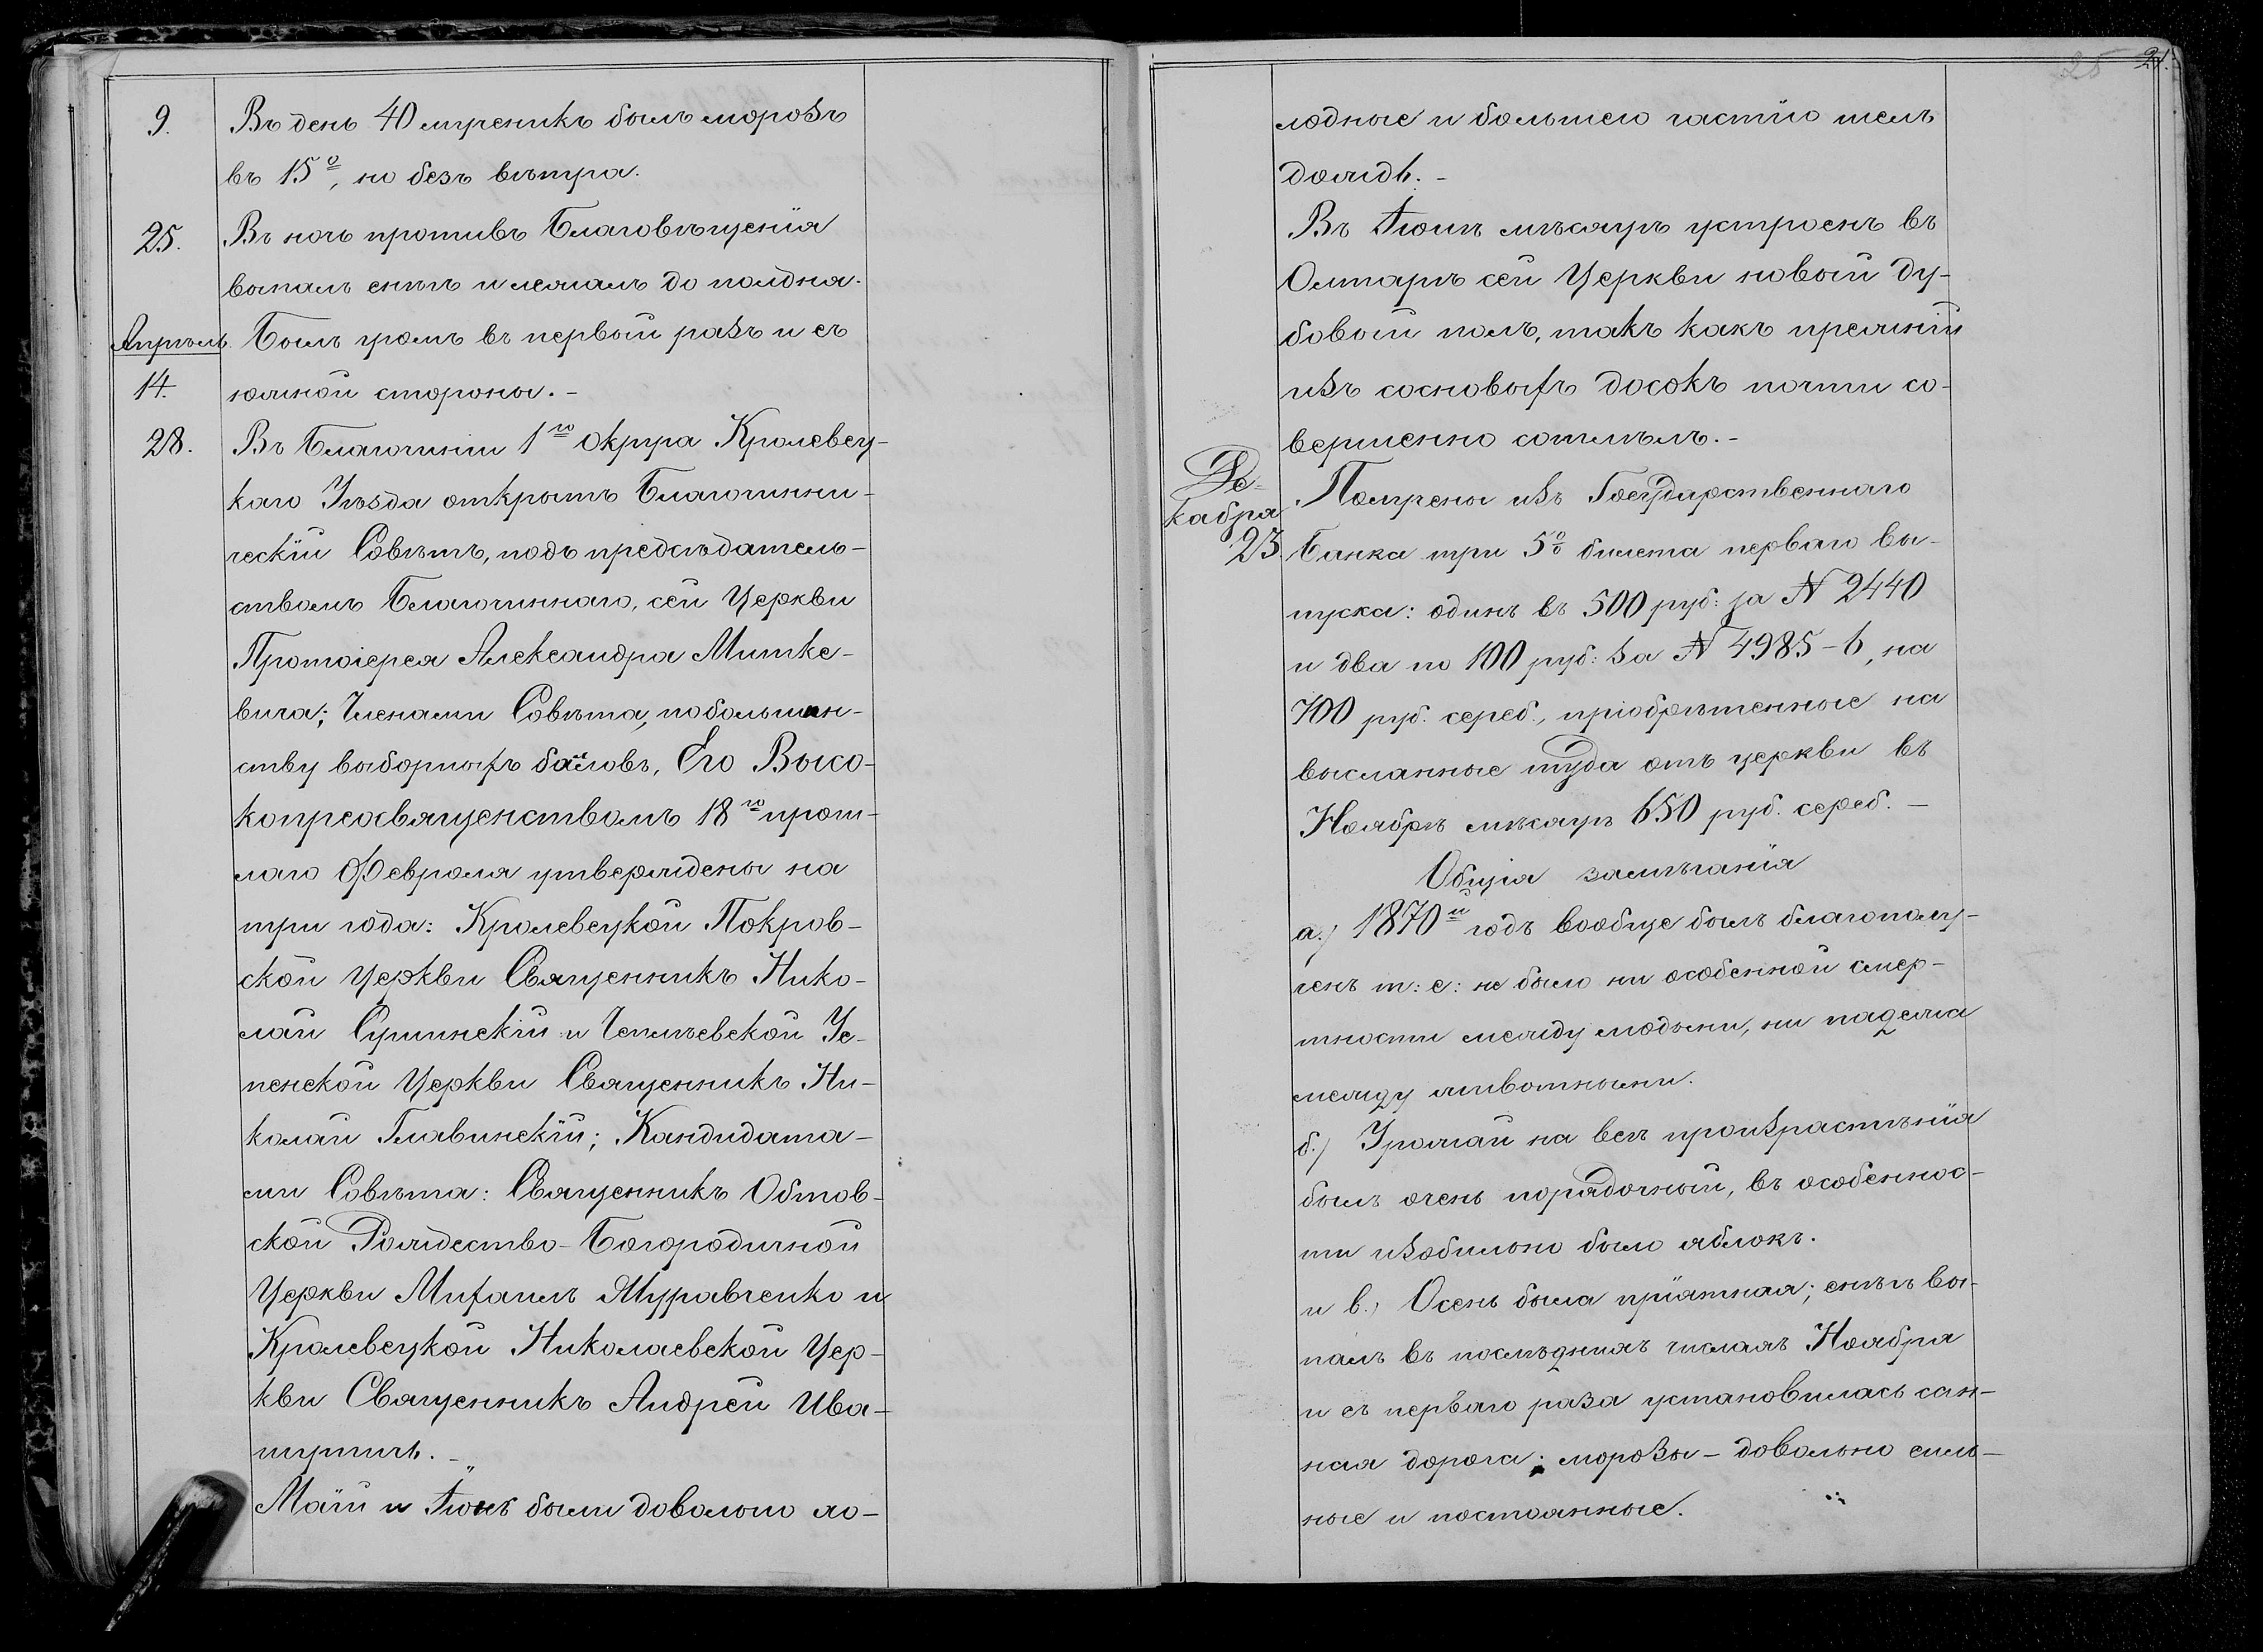 9. Въ день 40 мученикъ былъ морозъ
въ 15°, но безъ вѣтра.
25. Въ ночь противъ Благовѣщенія
выпалъ снѣгъ и лежалъ до полдня.
Апрѣль. Былъ громъ въ первый разъ и съ
14. южной стороны. -
28. Въ Благочиніи 1го Округа Кролевец-
каго Уѣзда открытъ Благочинни-
ческій Совѣтъ, подъ предсѣдатель-
ствомъ Благочиннаго, сей Церкви
Протоіерея Александра Митке-
вича; Членами Совѣта, по большин-
ству выборныхъ балловъ, Его Высо-
копреосвященствомъ 18го прош-
лаго Февраля утверждены на
три года: Кролевецкой Покров-
ской Церкви Священникъ Нико-
лай Сушинскій и Чепліевской Ус-
пенской Церкви Священникъ Ни-
колай Главинскій; Кандидата-
ми Совѣта: Священникъ Обтов-
ской Рождество-Богородичной
Церкви Михаилъ Журавченко и
Кролевецкой Николаевской Цер-
кви Священникъ Андрей Ива-
шутичъ. -
Май и Іюнь были довольно хо-
25 21.
лодные и большею частію шелъ
дождь. -
Въ Іюнѣ мѣсяцѣ устроенъ въ
Олтарѣ сей Церкви новый ду-
бовый полъ, такъ какъ прежній
изъ сосновыхъ досокъ почти со-
вершенно сотлѣлъ. -
Де-
кабря
Получены изъ Государственнаго
23. Банка три 5% билета перваго вы-
пуска: одинъ въ 500 руб: за № 2440
и два по 100 руб: за № 4985-6, на
700 руб. сереб., пріобрѣтенные на
высланные туда отъ церкви въ
Ноябрѣ мѣсяцѣ 650 руб. сереб. -
Общія замѣчанія
а.) 1870й годъ вообще былъ благополу-
ченъ т: е: не было ни особенной смер-
тности между людьми, ни падежа
между животными.
б.) Урожай на всѣ произрастѣнія
былъ очень порядочный, въ особеннос-
ти изобильно было яблокъ.
и в.) Осень была пріятная; снѣгъ вы-
палъ въ послѣднихъ числахъ Ноября
и съ перваго раза установилась сан-
ная дорога; морозы - довольно силь-
ные и постоянные.